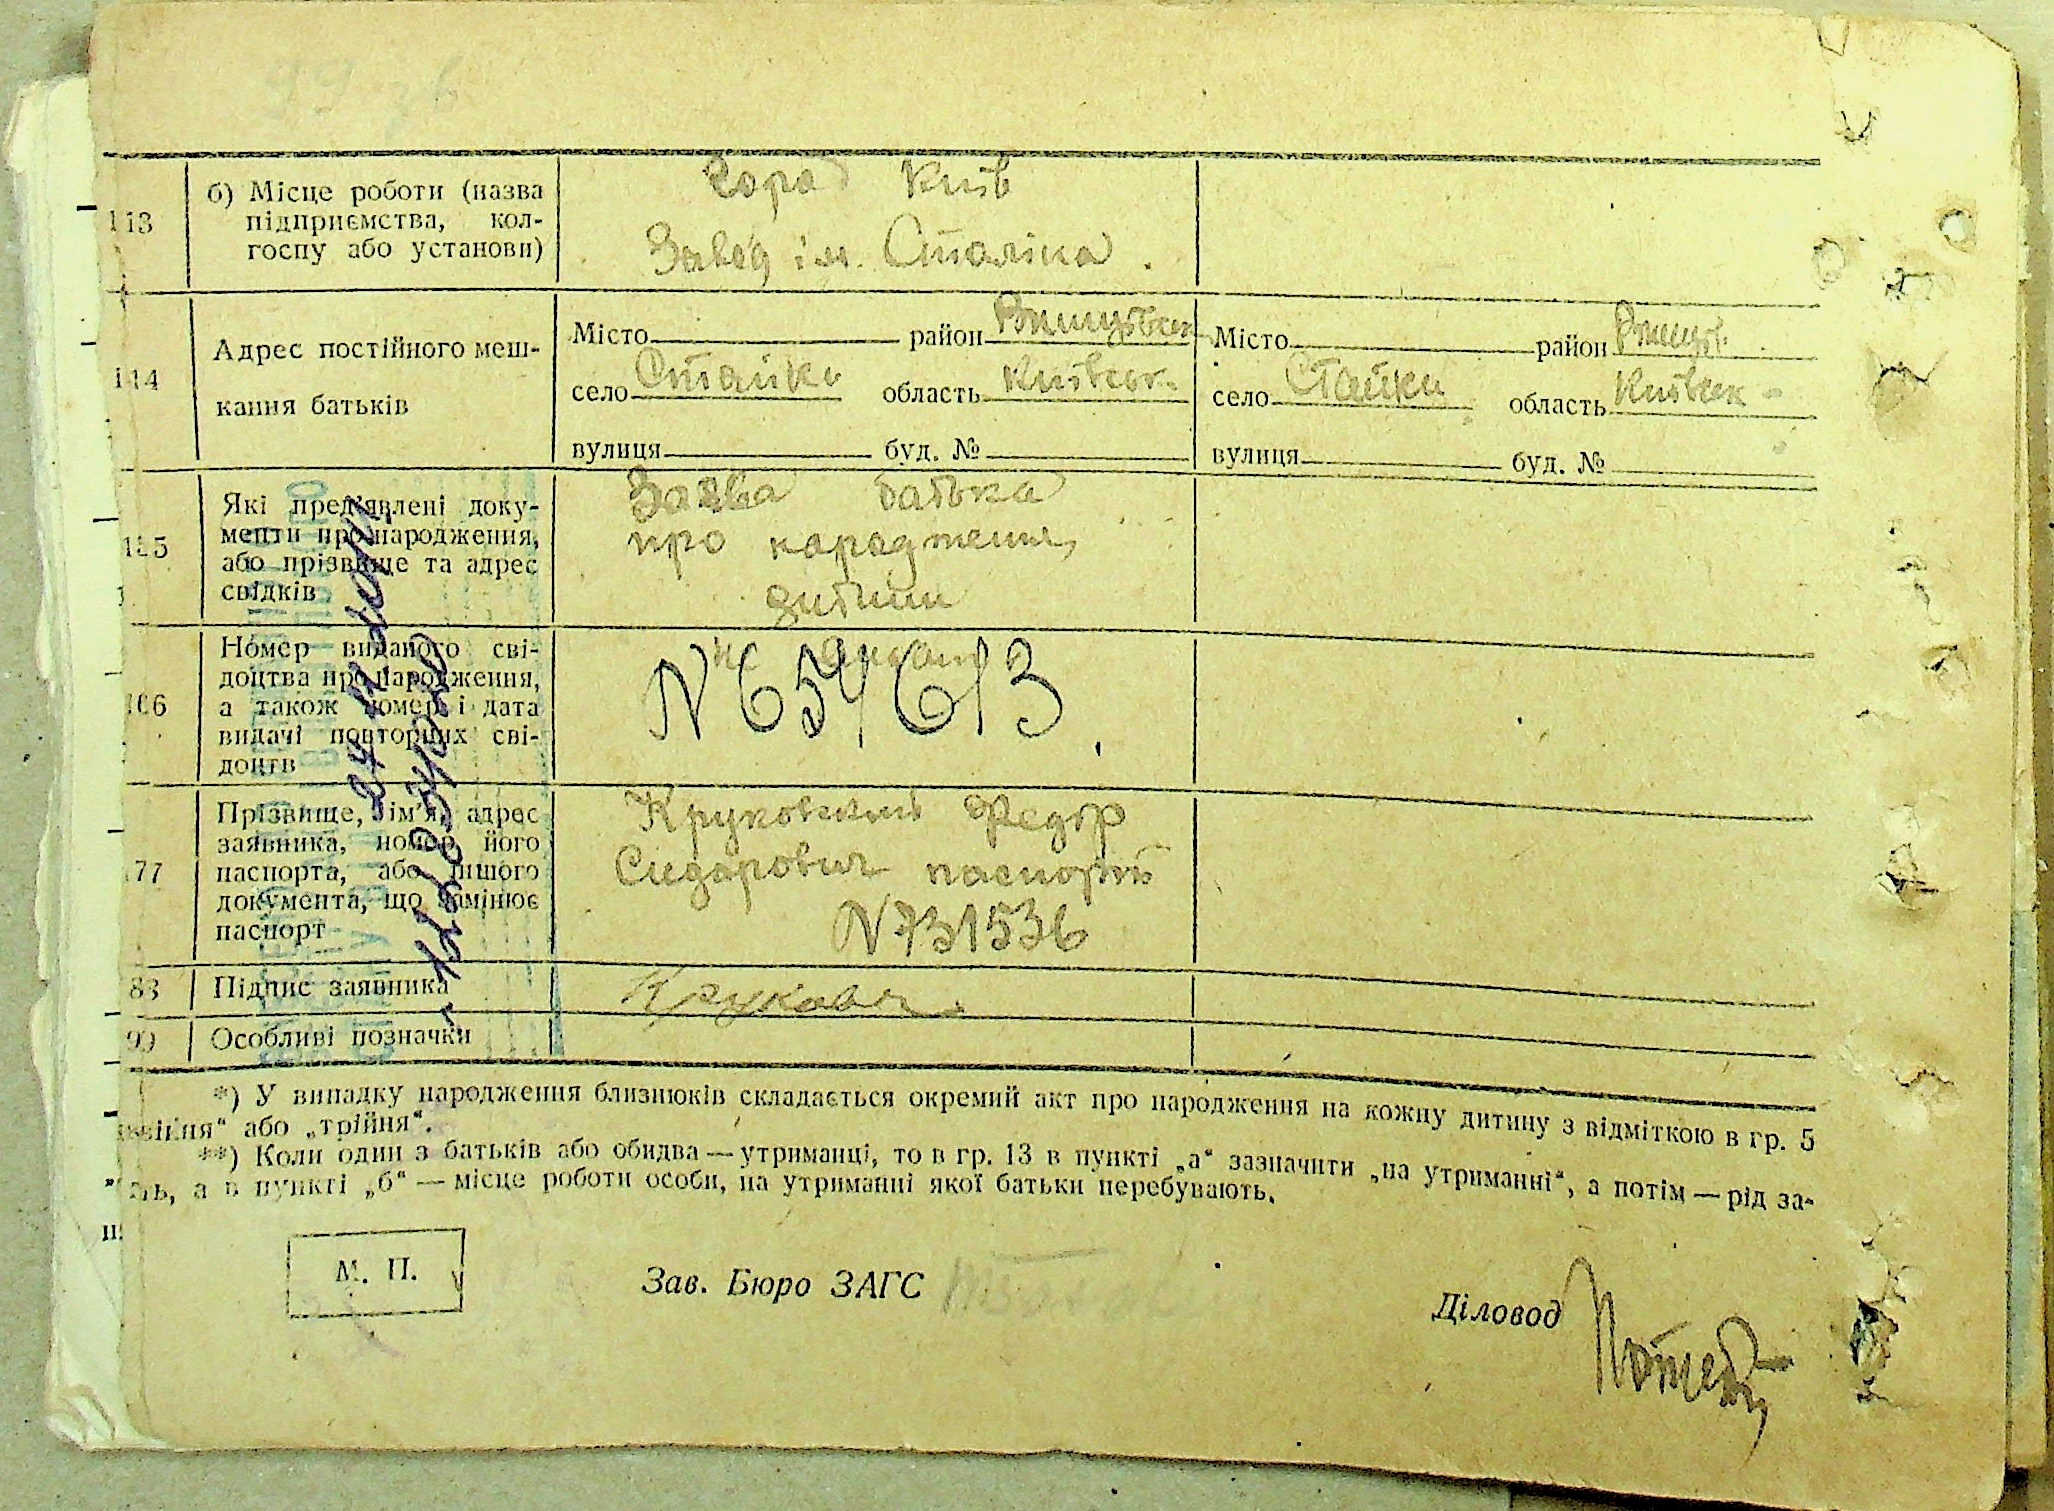 113
б) Місце роботи (назва
підприємства, кол-
госпу або установи)
Город Київ
Завод ім. Сталіна.
114
Адрес постійного меш-
кання батьків
Місто район
село Стайки область Київськ.
вулиця буд. №
Місто район
село Стайки область Київськ
вулиця буд. №
Які пред'явлені доку-
менти про народження,
або прізвище та адрес
свідків
Заява батька
про народження
дитини
Номер виданого сві-
доцтва про народження,
а також номер і дата
видачі повторних сві-
доцтв
N 654613
Прізвище, ім'я, адрес
заявника, номер його
паспорта, або іншого
документа, що замінює
паспорт
Круковський Федір
Сидорович паспорт
N 731536
Підпис заявника
Особливі позначки
*) У випадку народження близнюків складається окремий акт про народження на кожну дитину з відміткою в гр. 5
або „трійня“.
**) Коли один з батьків або обидва — утриманці, то в гр. 13 в пункті „а“ зазначити „на утриманні“, а потім — рід за-
а в пункті „б“ — місце роботи особи, на утриманні якої батьки перебувають.
М. П.
Зав. Бюро ЗАГС
Діловод